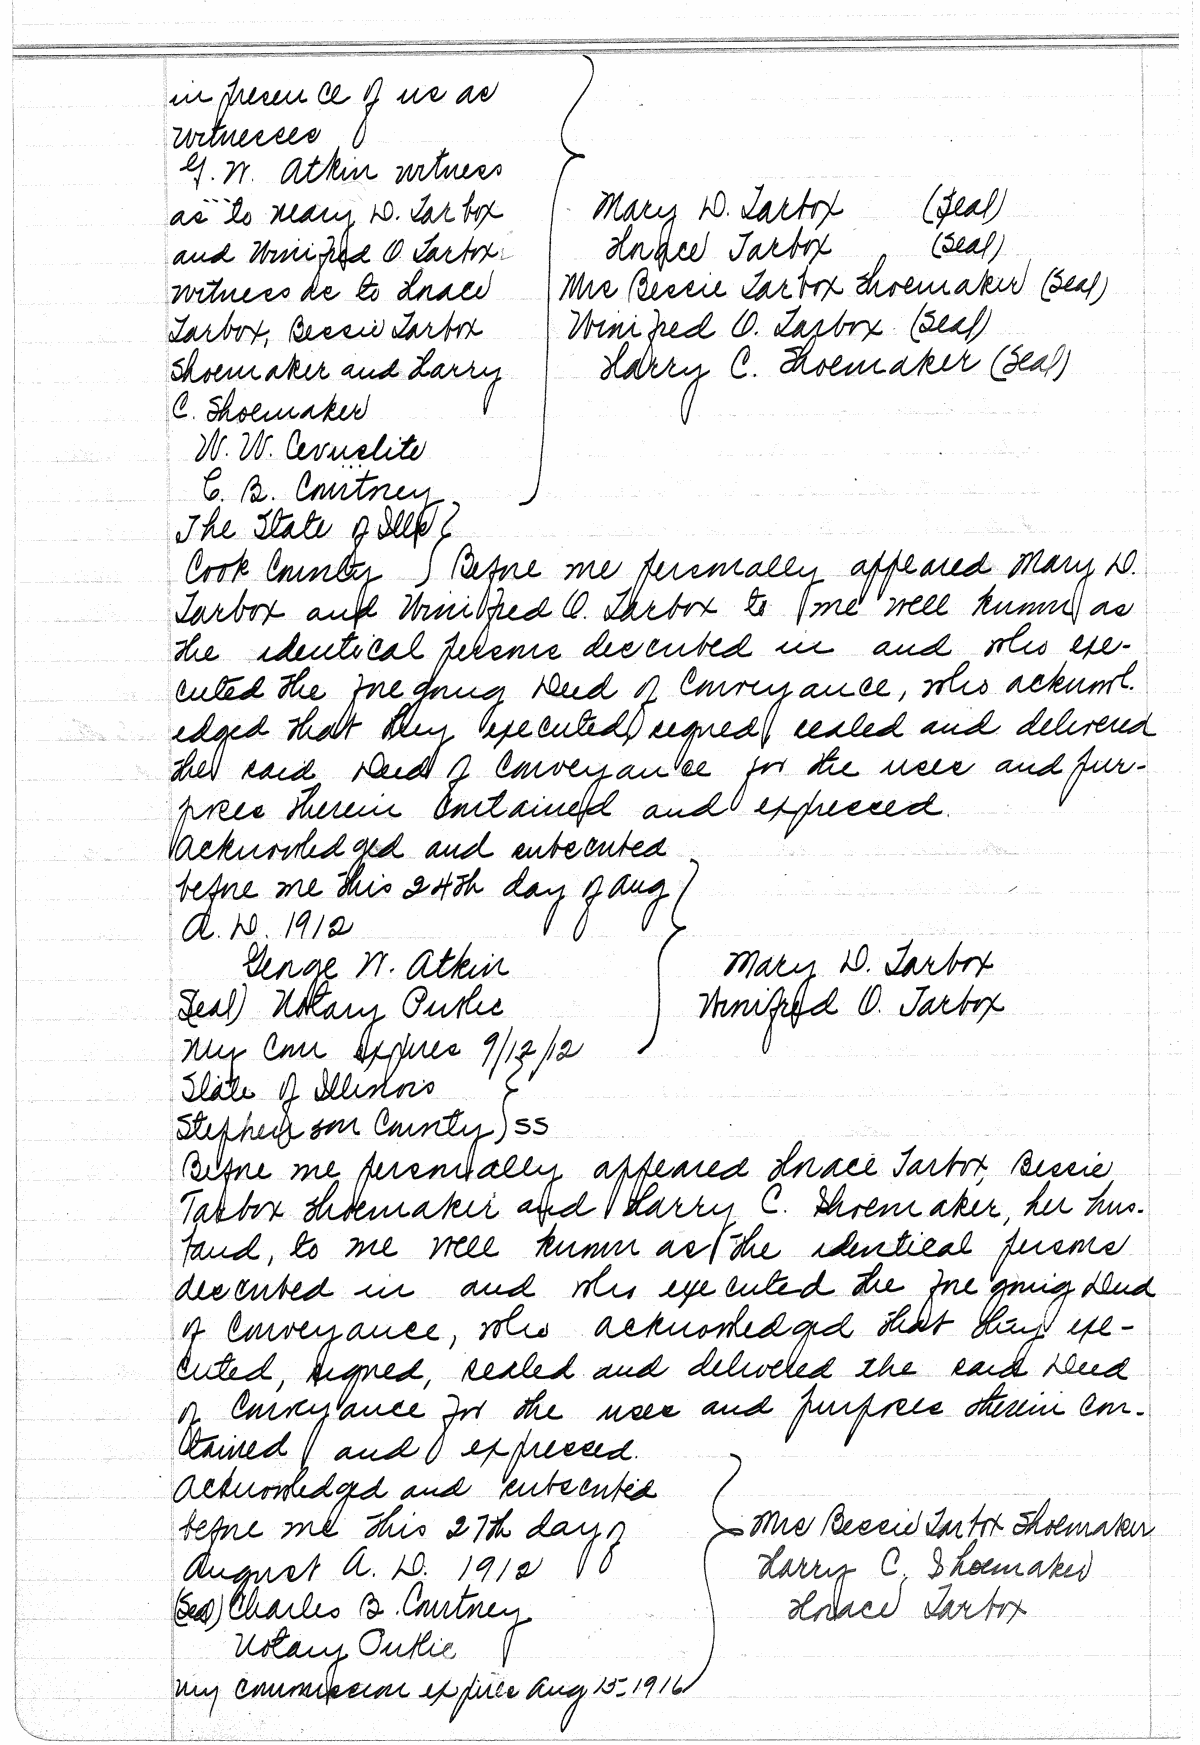 in presence of us as
witnesses
G. W. Atkin witness
as to Mary D. Tarbox
and Winifred O. Tarbox
witness as to Horace
Tarbox, Bessie Tarbox
Shoemaker and Harry
C. Shoemaker
W. W.
C. B. Courtney
Mary D. Tarbox (Seal)
Horace Tarbox (Seal)
Mrs Bessie Tarbox Shoemaker (Seal)
Winifred O. Tarbox (Seal)
Harry C. Shoemaker (Seal)
The State of Ills
Cook County } Before me personally appeared Mary D.
Tarbox and Winifred O. Tarbox to me well known as
the identical persons described in and who exe-
cuted the foregoing Deed of Conveyance, who acknowl.
edged that they executed, signed, sealed and delivered
the said Deed of Conveyance for the uses and pur-
poses therein contained and expressed.
Acknowledged and subscribed
before me this 24th day of Aug
A. D. 1912
George W. Atkin
Seal) Notary Public
My Com expires 9/12/12
Mary D. Tarbox
Winifred O. Tarbox
State of Illinois
Stephenson County) SS
Before me personally appeared Horace Tarbox, Bessie
Tarbox Shoemaker and Harry C. Shoemaker, her hus-
band, to me well known as the identical persons
described in and who executed the foregoing Deed
of Conveyance, who acknowledged that they exe-
cuted, signed, sealed and delivered the said Deed
of Conveyance for the uses and purposes therein con-
tained and expressed.
Acknowledged and subscribed
before me this 27th day of
August A. D. 1912
(Seal) Charles B. Courtney
Notary Public
my commission expires Aug 15-1916
Mrs Bessie Tarbox Shoemaker
Harry C. Shoemaker
Horace Tarbox